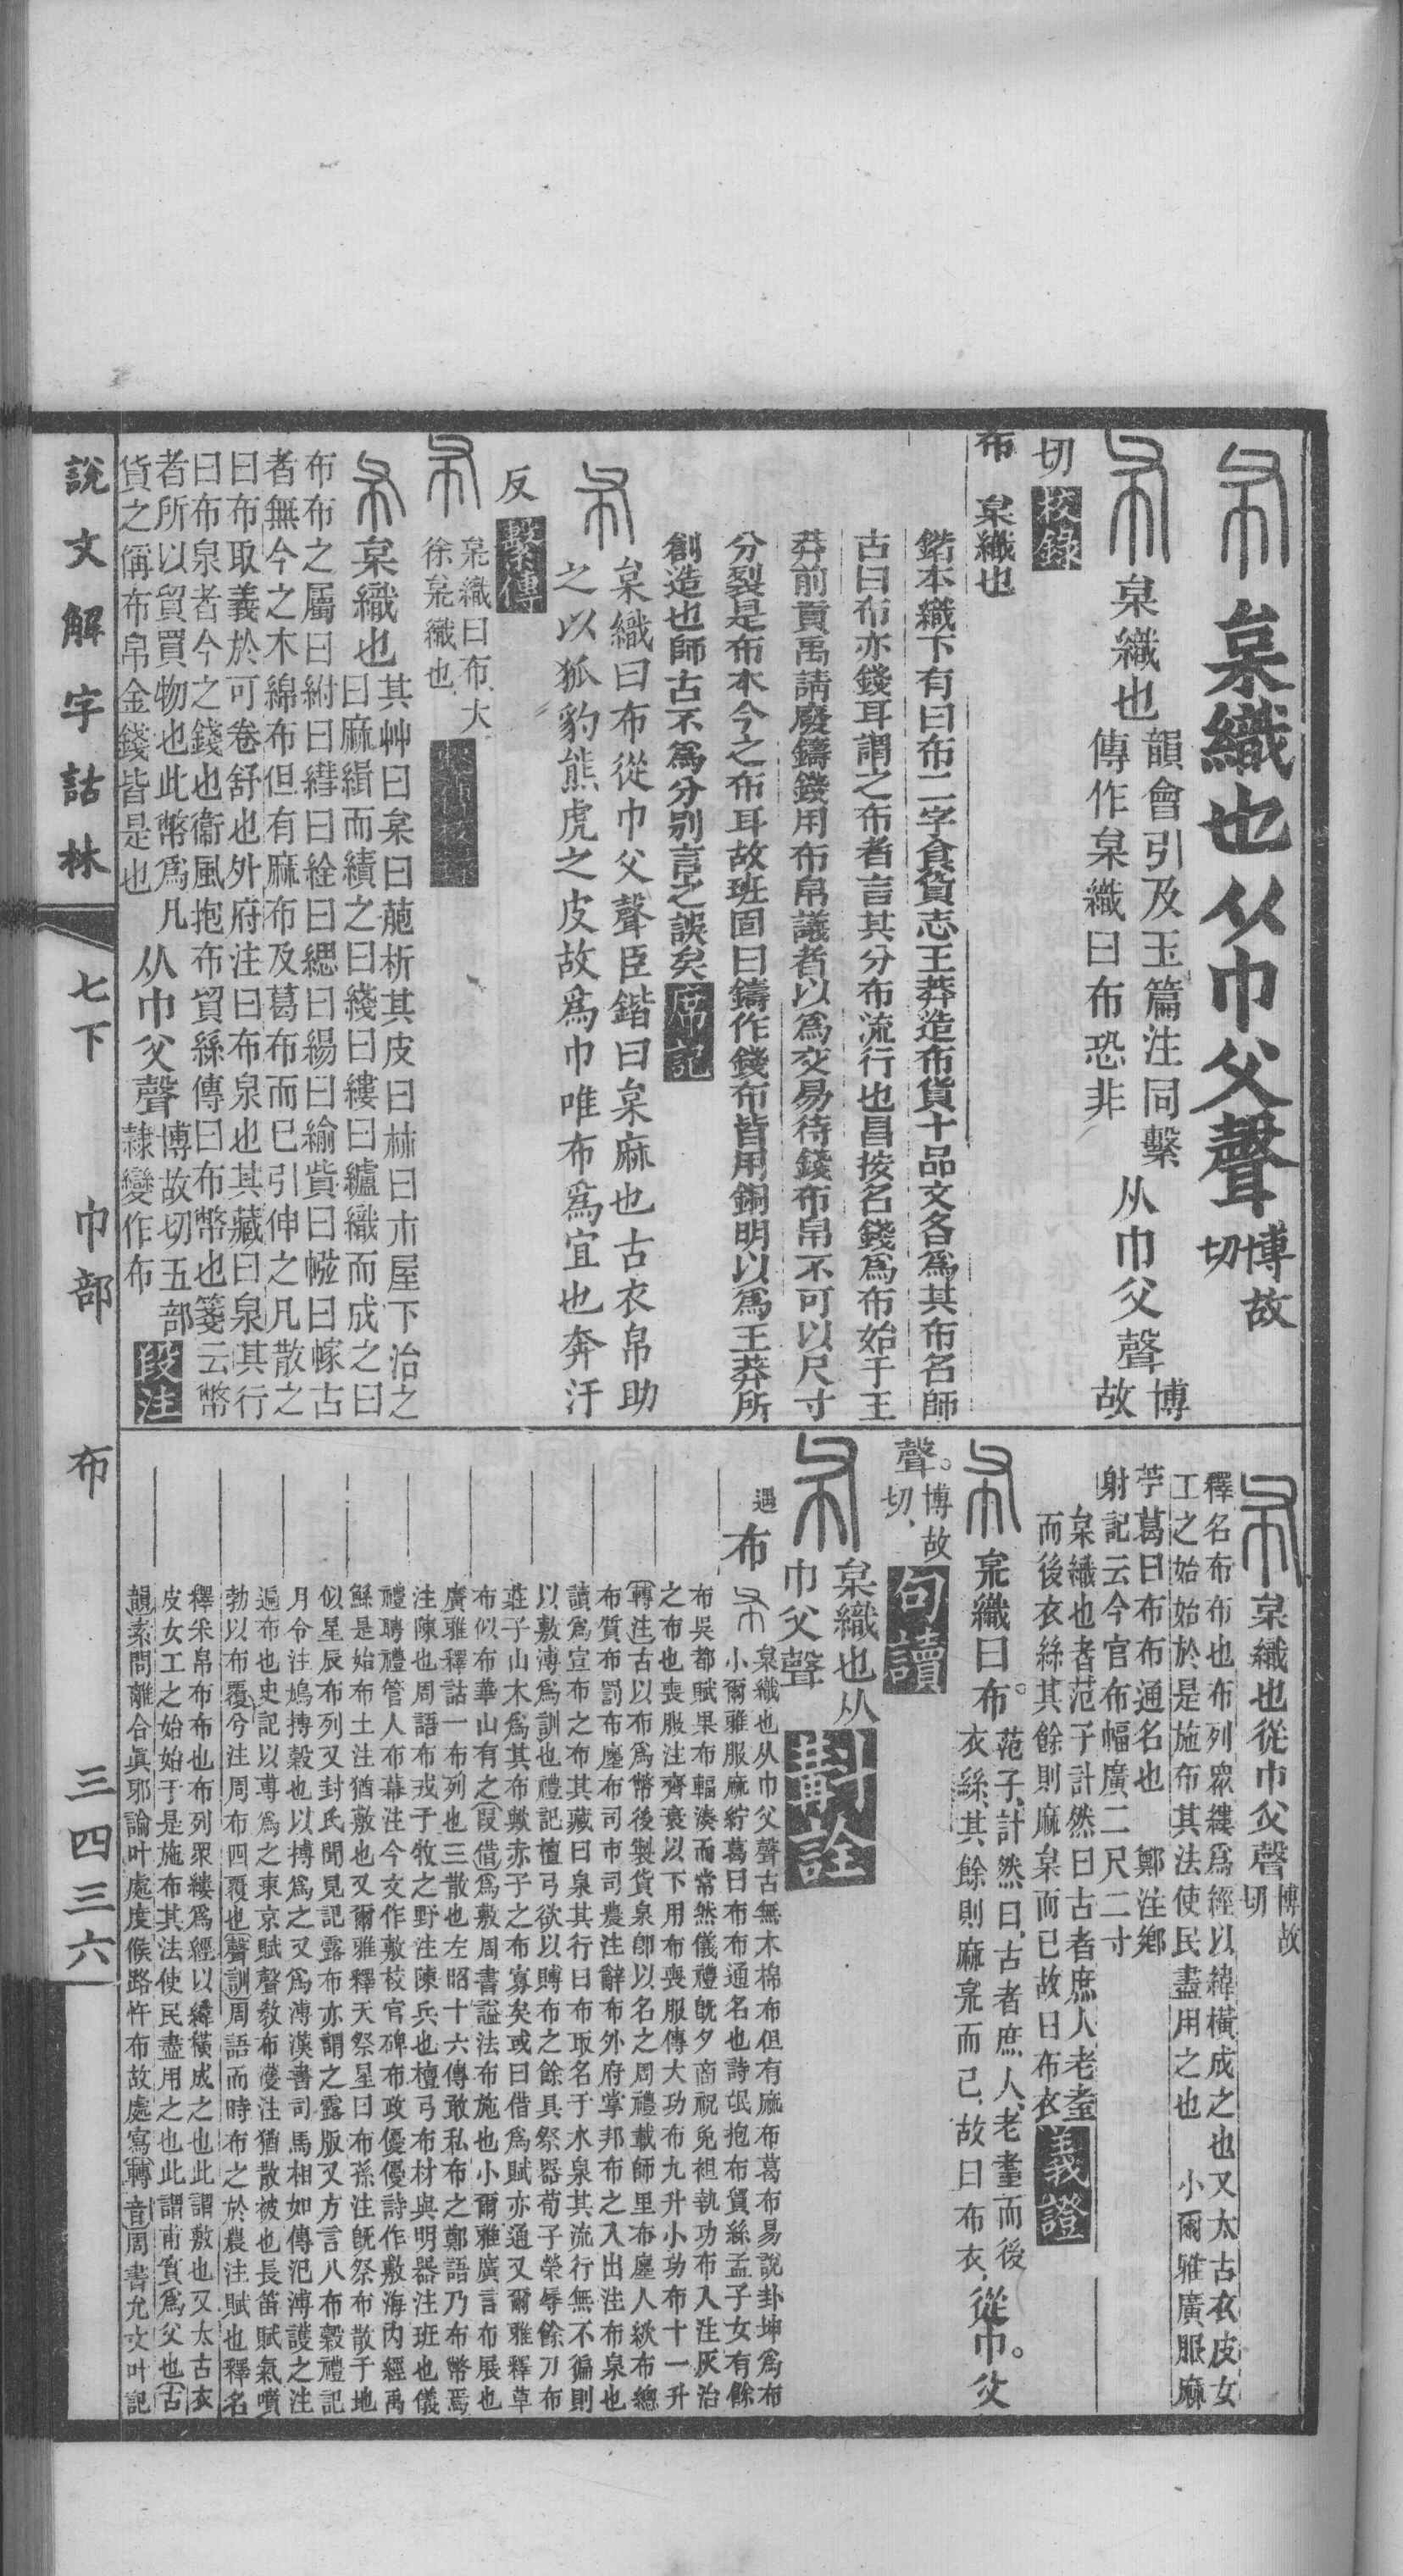 布 枲織也从巾父聲博故切
布 枲織也韻會引及玉篇注同繫傳作枲織曰布恐非从巾父聲博故
切校錄
布 枲織也
鍇本織下有曰布二字食貨志王莽造布貨十品文各爲其布名師
古曰布亦錢耳謂之布者言其分布流行也昌按名錢爲布始于王
莽前貢禹請廢鑄錢用布帛議者以爲交易待錢布帛不可以尺寸
分裂是布本今之布耳故班固曰鑄作錢布皆用銅明以爲王莽所
創造也師古不爲分别言之誤矣席記
布 枲織曰布從巾父聲臣鍇曰枲麻也古衣帛助
之以狐豹熊虎之皮故爲巾唯布爲宜也奔汗
反繫傳
布 枲織曰布大徐枲織也
布 枲織也其艸曰枲曰萉析其皮曰𣏟曰木屋下治之
曰麻緝而績之曰綫曰縷曰纑織而成之曰
布布之屬曰紨曰䌖曰絟曰緦曰緆曰緰貲曰㡆曰幏古
者無今之木綿布但有麻布及葛布而已引伸之凡散之
曰布取義於可卷舒也外府注曰布泉也其藏曰泉其行
曰布泉者今之錢也衞風抱布貿絲傳曰布幣也箋云幣
者所以貿買物也此幣爲凡
貨之偁布帛金錢皆是也从巾父聲博故切五部隷變作布段注
布 枲織也從巾父聲博故切
釋名布布也布列眾縷爲經以緯橫成之也又太古衣皮女
工之始始於是施布其法使民盡用之也 小爾雅廣服麻
苧葛曰布布通名也 鄭注鄉
射記云今官布幅廣二尺二寸
枲織也者范子計然曰古者庶人老耋
而後衣絲其餘則麻枲而已故曰布衣義證
布 枲織曰布范子計然曰古者庶人老耋而後衣絲其餘則麻枲而已故曰布衣從巾父
聲博故切句讀
布 枲織也从巾父聲斠詮
遇布
布 枲織也从巾父聲古無木棉布但有麻布葛布易說卦坤爲布
小爾雅服麻紵葛曰布布通名也詩氓抱布貿絲孟子女有餘
布吳都賦果布輻湊而常然儀禮旣夕商祝免袒執功布入注灰治
之布也喪服注齊衰以下用布喪服傳大功布九升小功布十一升
轉注古以布爲幣後製貨泉卽以名之周禮載師里布廛人絘布總
布質布罰布廛布司巿司農注辭布外府掌邦布之入出注布泉也
讀爲宣布之布其藏曰泉其行曰布取名于水泉其流行無不徧則
以敷溥爲訓也禮記檀弓欲以賻布之餘具祭器荀子榮辱餘刀布
莊子山木爲其布歟赤子之布寡矣或曰借爲賦亦通又爾雅釋草
布似布華山有之叚借爲敷周書謚法布施也小爾雅廣言布展也
廣雅釋詁一布列也三散也左昭十六傳敢私布之鄭語乃布幣焉
注陳也周語布戎于牧之野注陳兵也檀弓布材與明器注班也儀
禮聘禮管人布幕注今文作敷校官碑布政優優詩作敷海內經禹
鯀是始布土注猶敷也又爾雅釋天祭星曰布孫注旣祭布散于地
似星辰布列又封氏聞見記露布亦謂之露版又方言八布穀禮記
月令注鳩搏穀也以搏爲之又爲溥漢書司馬相如傳氾溥護之注
遍布也史記以尃爲之東京賦聲教布濩注猶散被也長笛賦氣噴
勃以布覆兮注周布四覆也聲訓周語而時布之於農注賦也釋名
釋采帛布布也布列衆縷爲經以緯橫成之也此謂敷也又太古衣
皮女工之始始于是施布其法使民盡用之也此謂甫實爲父也古
韻素問離合眞邪論叶處度候路忤布故處寫轉音周書允文叶記
說文解字詁林 七下 巾部 布 三四三六